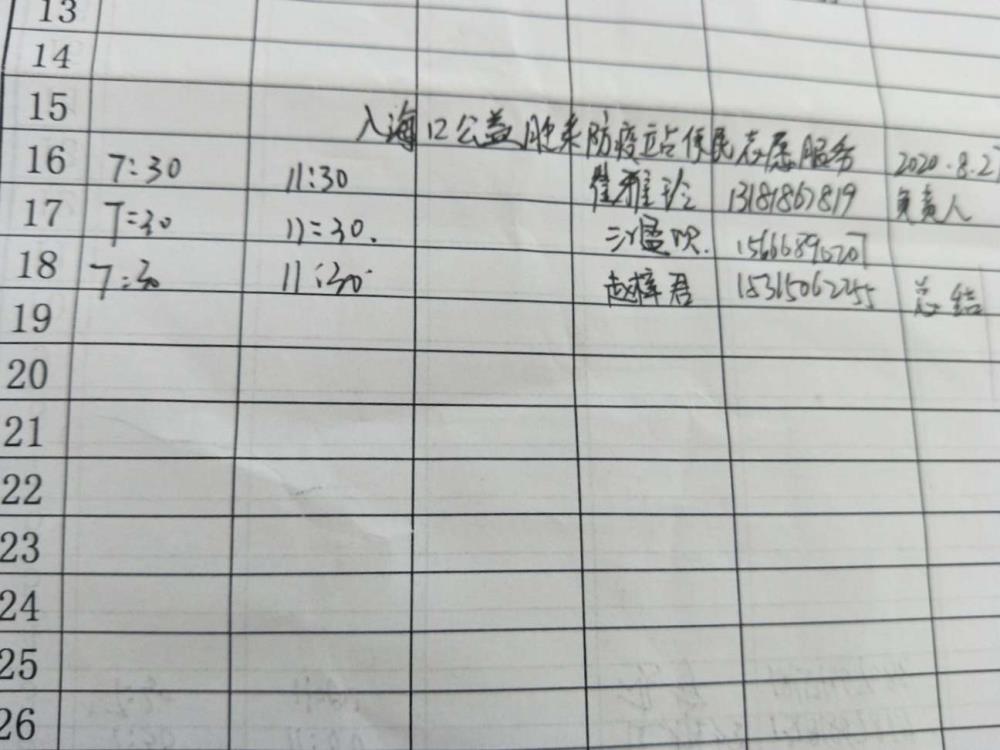 13
14
15
入海口公益 防疫站便民志愿服务 2020.8.27
16 7:30 11:30 雅 13181867819 负责人
17 7:30 11:30.
18 7:30 11:30 赵梓君 15315062255 总结
19
20
21
22
23
24
25
26